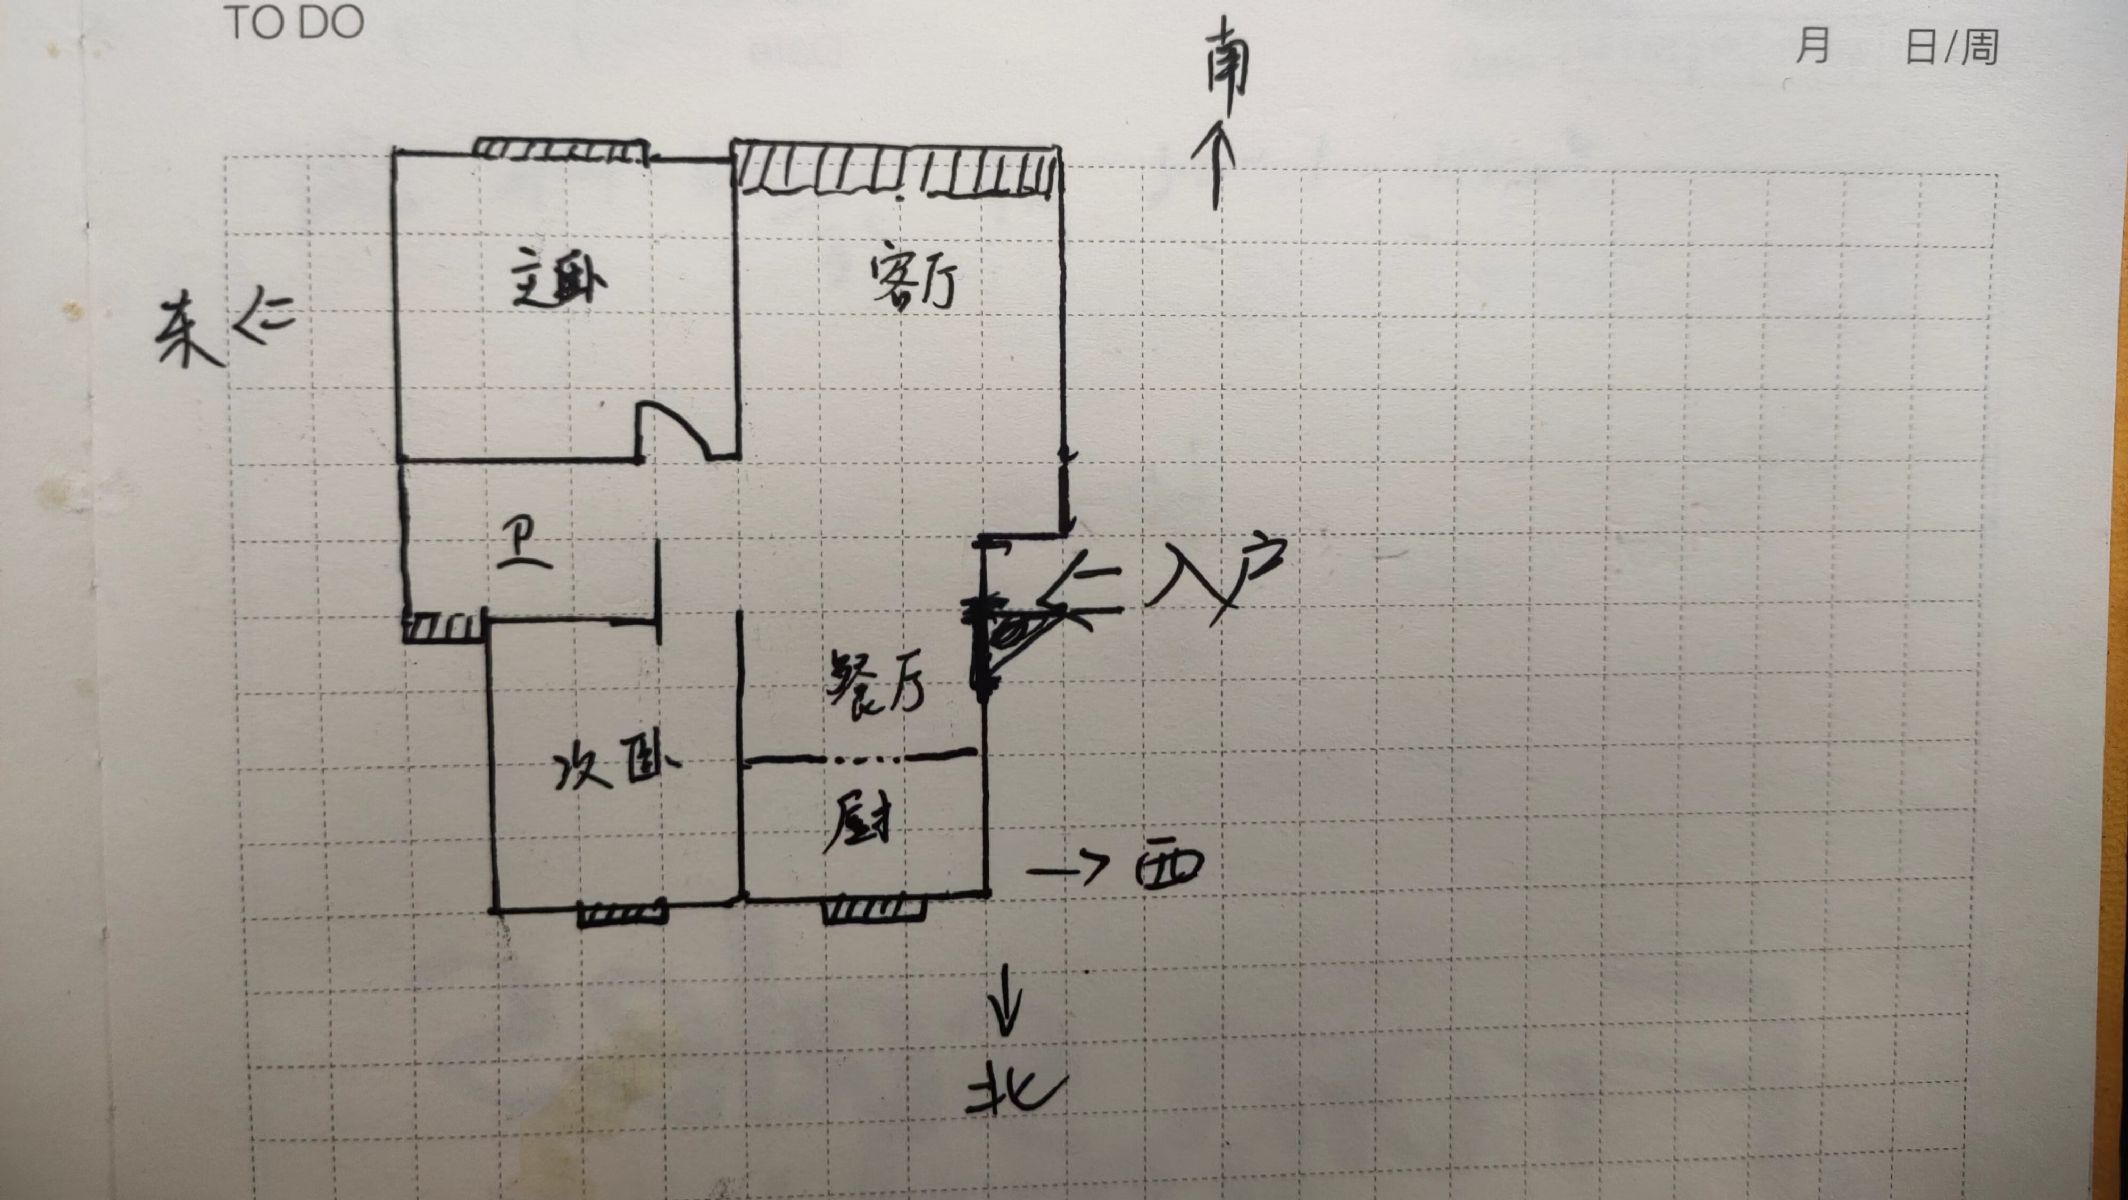 TO DO
月 日/周
南
主卧
客厅
东
卫
入户
餐厅
次卧
厨
西
北